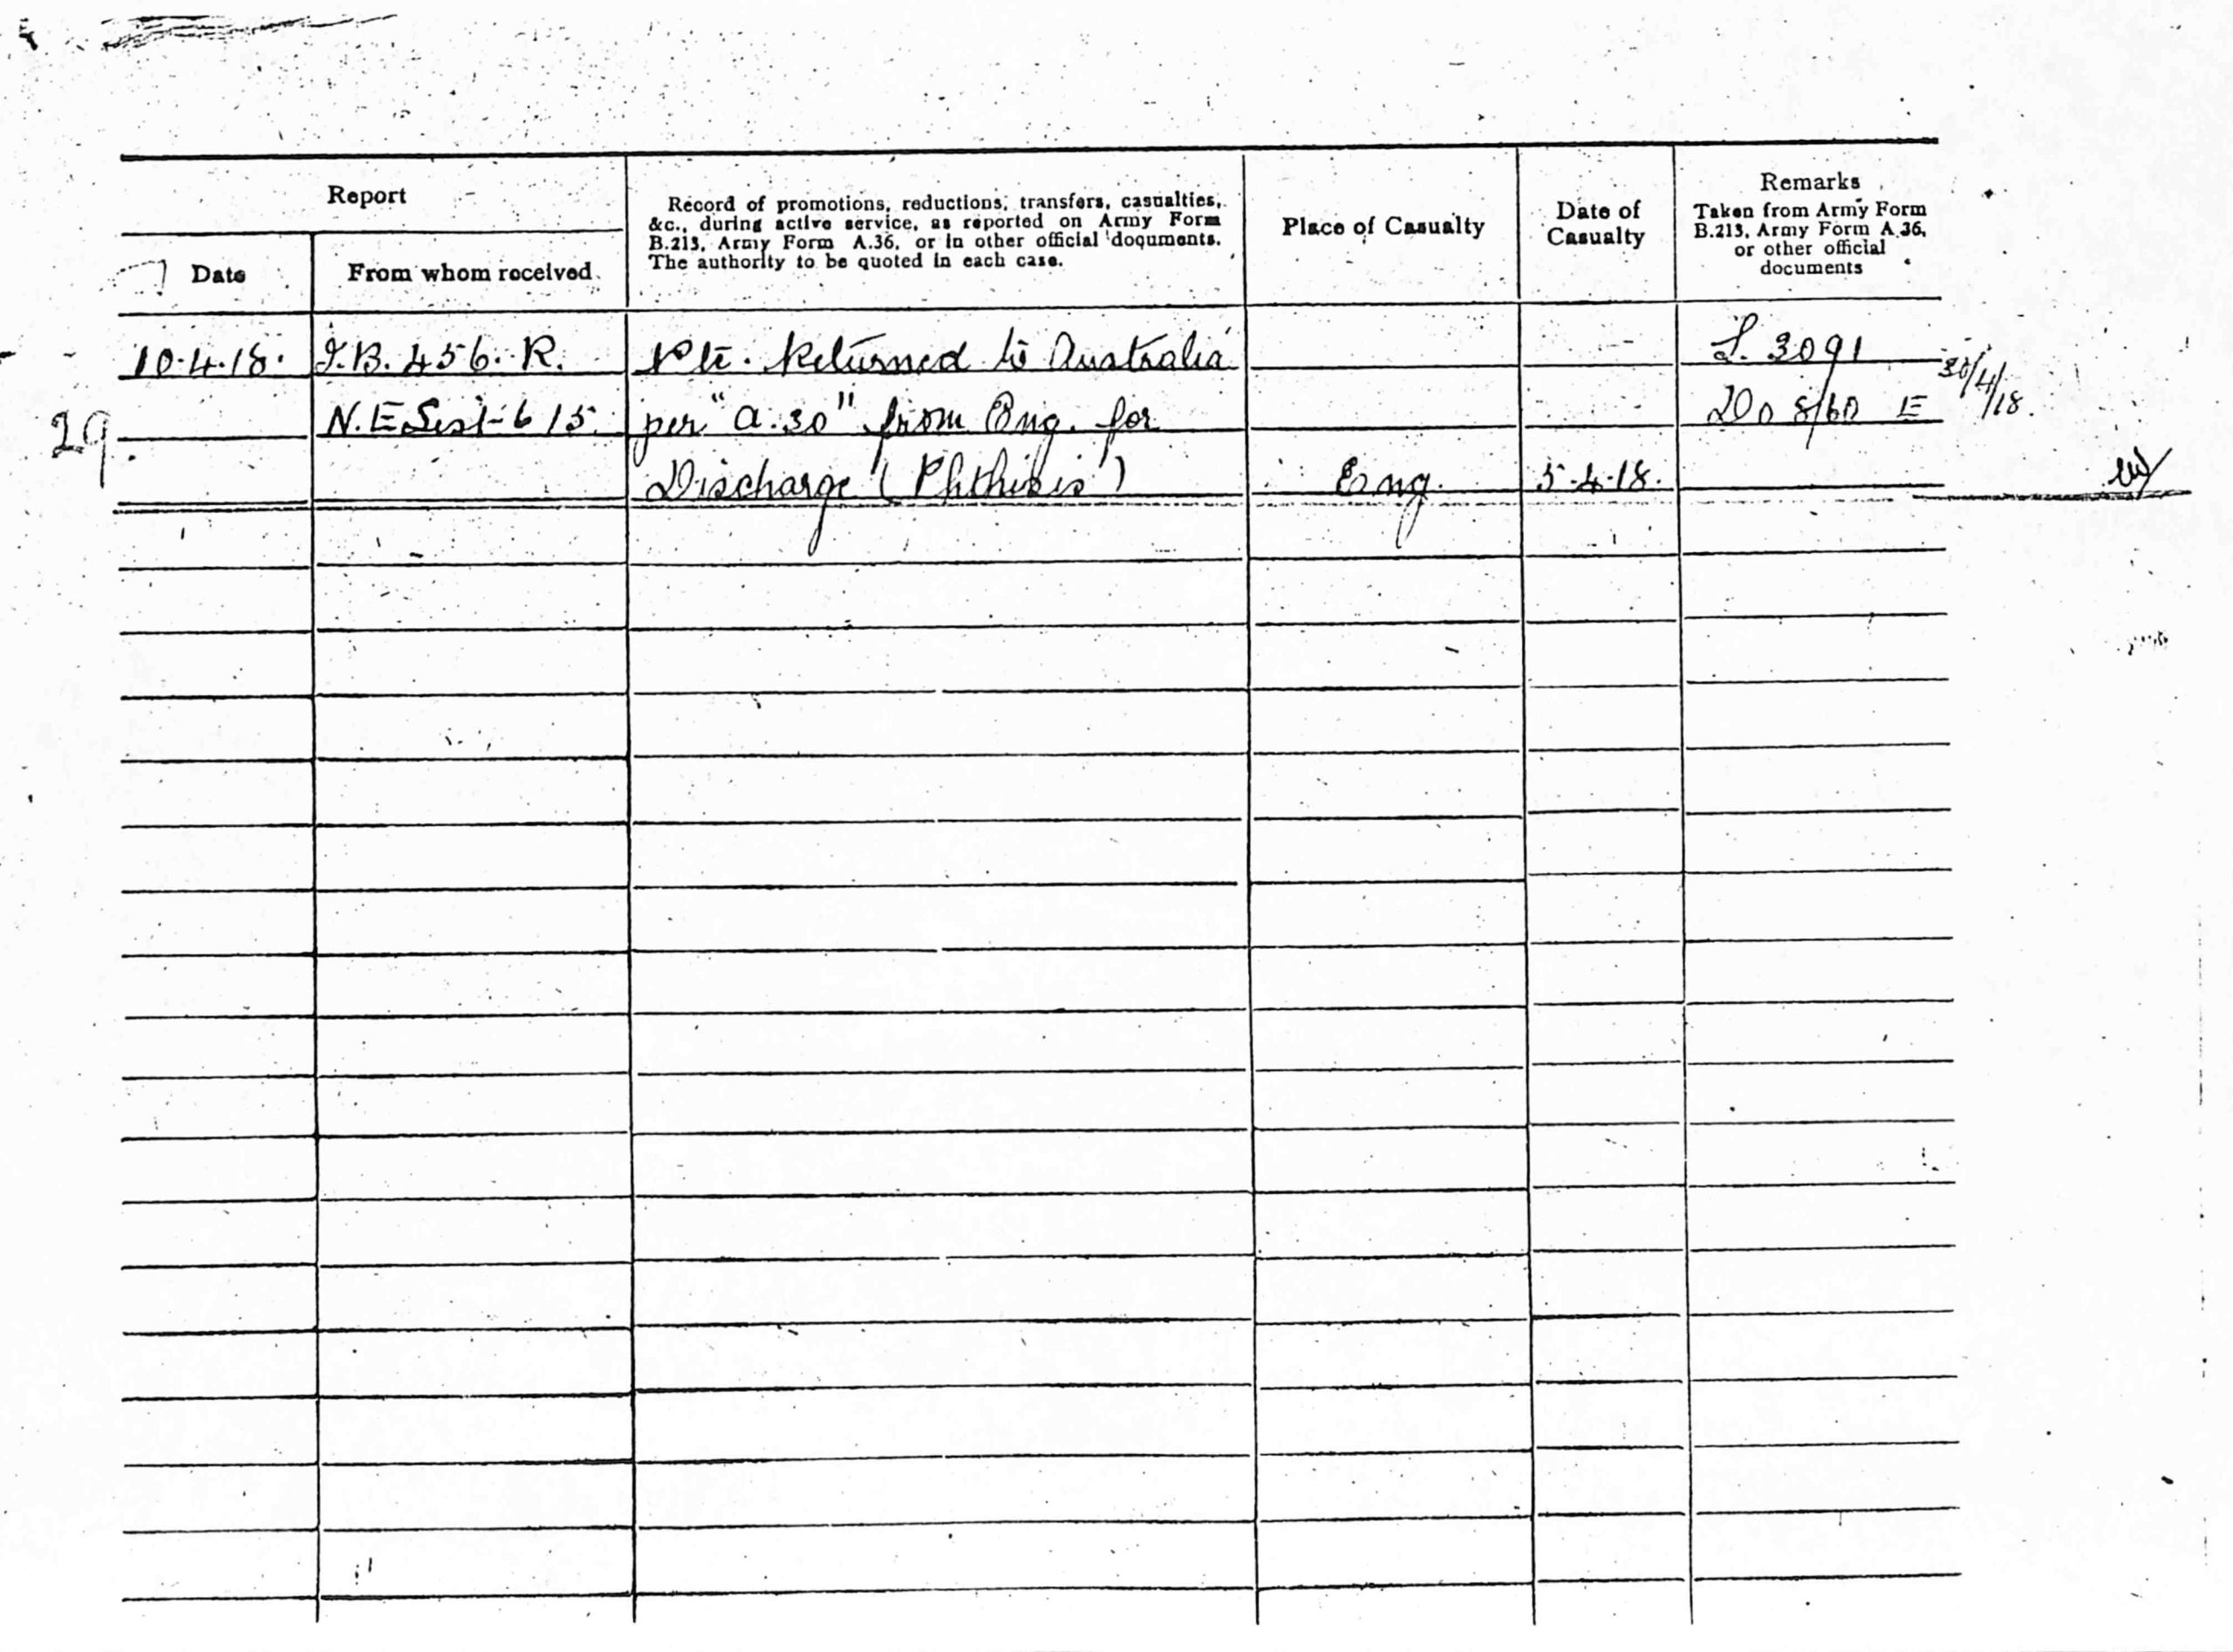 Report
Date
From whom received.
Record of promotions, reductions, transfers, casualties,
&c., during active service, as reported on Army Form
B.213, Army Form A.36, or in other official documents.
The authority to be quoted in each case.
Place of Casualty
Date of
Casualty
Remarks
Taken from Army Form
B.213, Army Form A.36,
or other official
documents
10.4.18. I.B. 456. R. Pte. Returned to Australia L. 3091
29. N.E. 615. per "A.30" from Eng. for DO 8/60 E 30/4/18.
Discharge (Phthisis) Eng. 5.4.18.